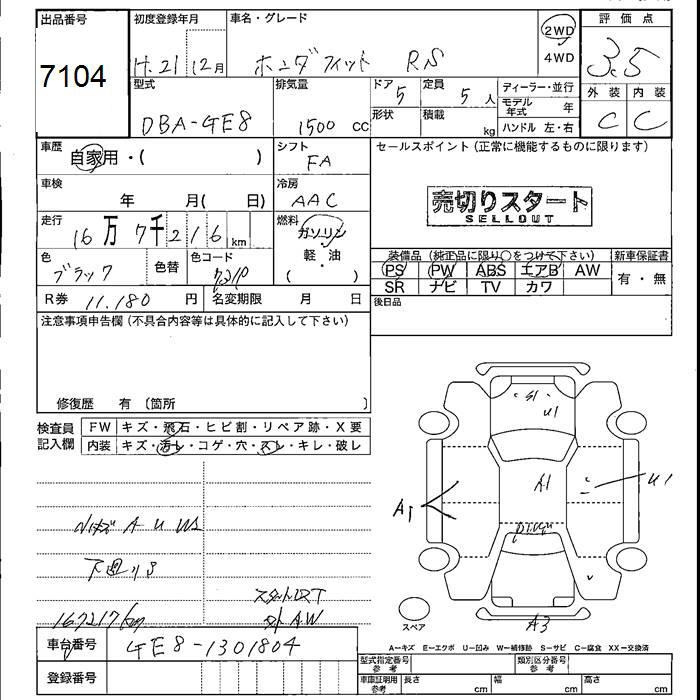 出品番号 初度登録年月 車名・グレード 評価点
7104 H.21 12月 ホンダフィット RS 2WD 4WD 3.5
型式 排気量 ドア 定員 ディーラー・並行 外装 内装
DBA-GE8 1500 cc 5 5人 モデル年式 年 C C
形状 積載 kg ハンドル 左・右
車歴 自家用・( ) シフト FA セールスポイント(正常に機能するものに限ります)
車検 年 月( 日) 冷房 AAC
売切りスタート
SELLOUT
走行 16万7千216 km 燃料 ガソリン 軽・油 ( )
装備品(純正品に限り○をつけて下さい) 新車保証書
色 ブラック 色替 色コード
PS PW ABS エアB AW 有・無
SR ナビ TV カワ
R券 11.180 円 名変期限 月 日 後日品
注意事項申告欄(不具合内容等は具体的に記入して下さい)
修復歴 有 〔箇所 〕
検査員記入欄 FW キズ・飛石・ヒビ割・リペア跡・X要
内装 キズ・汚レ・コゲ・穴・スレ・キレ・破レ
S1
U1
A1
A1
U1
A U W2
下廻りS
167217km
外AW
A3
スペア
車台番号 GE8-1301804
A=キズ E=エクボ U=凹み W=補修跡 S=サビ C=腐食 XX=交換済
登録番号
型式指定番号 参考 類別区分番号 参考
車庫証明用 参考 長さ cm 幅 cm 高さ cm